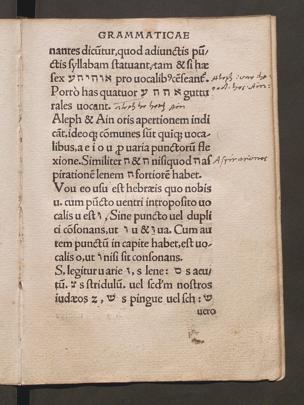 GRAMMATICAE
nantes dicũtur, quod adiunctis pũ/
ctis syllabam statuant, tam & si hæ
sex אוהיחע pro vocalibꝰ cēseant̃.
Porrò has quatuor אההע guttu
rales vocant.
Aleph & Ain oris apertionem indi
cãt, ideoqꝫ cōmunes sũt quiqꝫ voca
libus, a e i o u ꝓ uaria punctorũ fle
xione. Similiter ח & ה nisi quod ה as
pirationē lenem ח fortiorē habet. Aspirationes
Vou eo usu est hebræis quo nobis
u. cum pũcto ventri introposito vo
calis u est ו, Sine puncto vel dupli
ci cōsonans, ut ו u & ו ua. Cum au
tem punctũ in capite habet, est uo-
calis o, ut ו nisi sit consonans.
S, legitur uarie ז, s lene: ס s acu/
tũ. צ s stridulũ. vel scd̃m nostros
iudæos z, ש s pingue vel sch: ש
vero